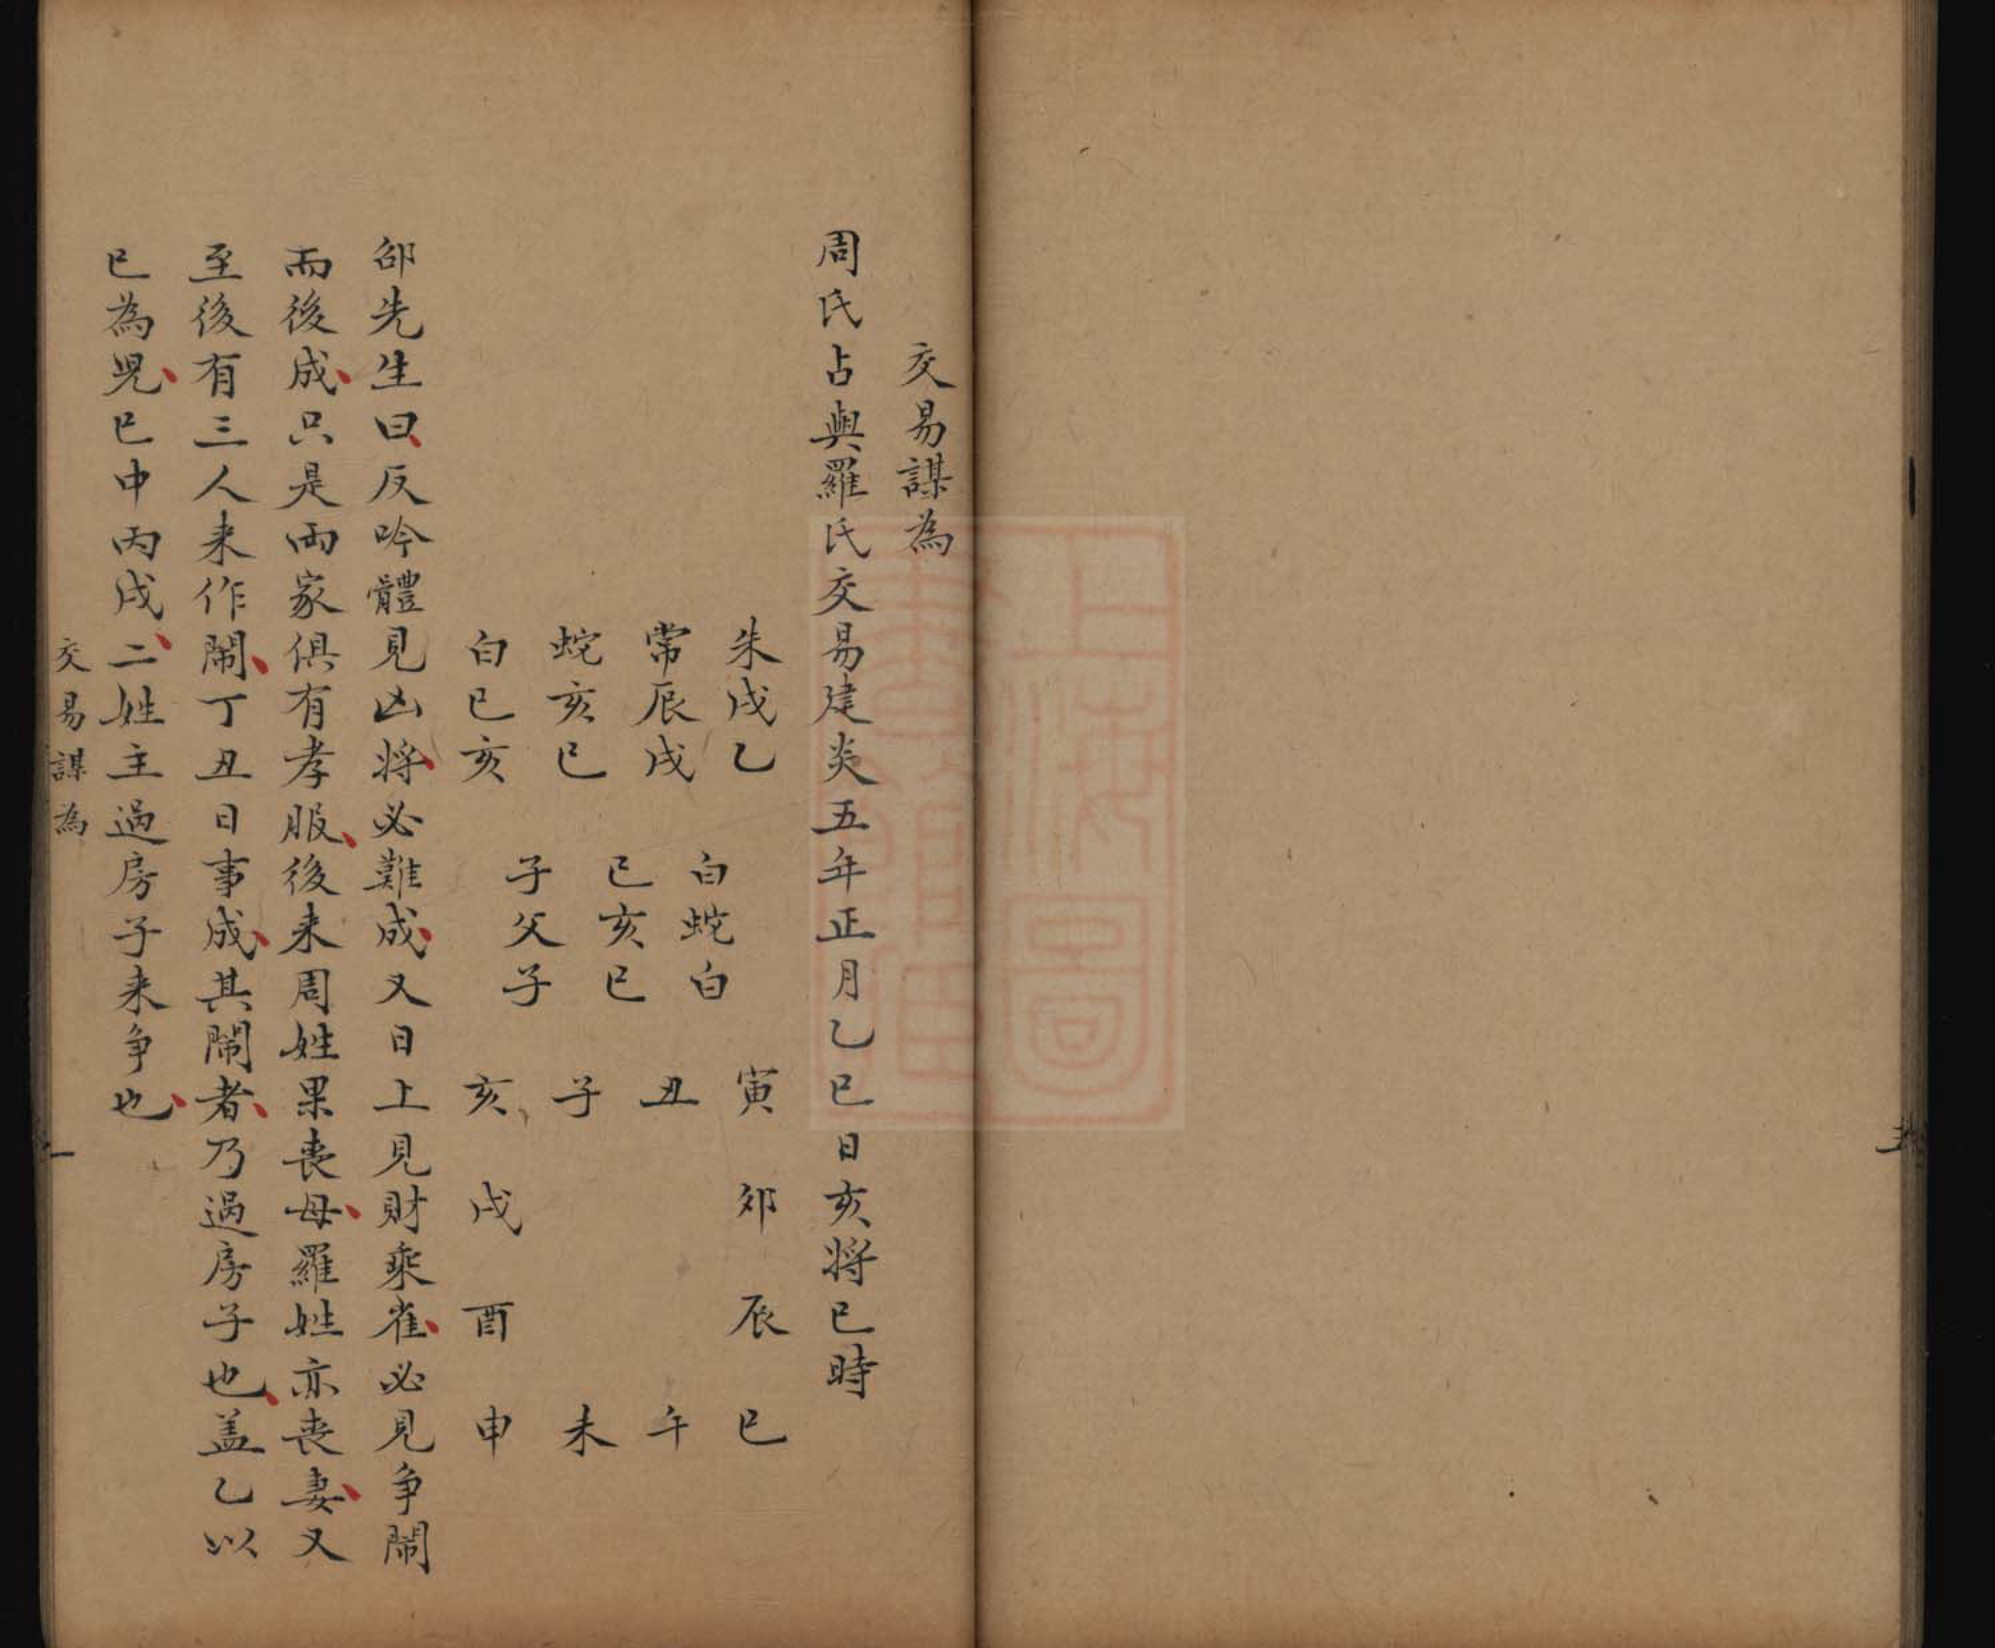 交易謀為
周氏占與羅氏交易建炎五年正月乙巳日亥將巳時
朱戌乙
常辰戌
蛇亥巳
白巳亥
白蛇白
巳亥巳
子父子
寅卯辰巳
丑午
子未
亥戌酉申
邵先生曰反吟體見凶將必難成又日上見財乘雀必見争鬧
而後成只是兩家俱有孝服後来周姓果丧母羅姓亦丧妻又
至後有三人来作鬧丁丑日事成其鬧者乃過房子也盖乙以
巳為児巳中丙戌二姓主過房子来争也
交易謀為
一
上海圖